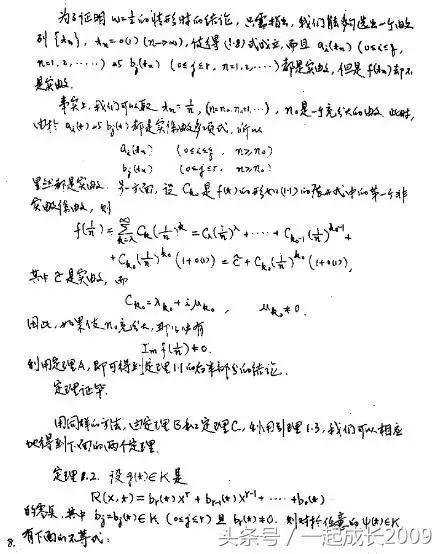 为了证明 ω=½ 的情形时的结论，只需指出，我们能够造出一个数
列 {xₙ}，xₙ=o(1) (n→∞)，使得 (1.8) 式成立，而且 aᵢ(xₙ) (0≤i≤q,
n=1,2,……) 与 bⱼ(xₙ) (0≤j≤r, n=1,2,……) 都是实数，但是 f(xₙ) 却不
是实数.
事实上，我们可以取 xₙ=1/n, (n=n₀,n₀+1,…)，n₀是一个充分大的数. 此时,
由于 aᵢ(x) 与 bⱼ(x) 都是实系数多项式，所以
aᵢ(xₙ) (0≤i≤q, n≥n₀)
bⱼ(xₙ) (0≤j≤r, n≥n₀)
显然都是实数. 另一方面，设 Cₖ₀ 是 f(x) 的形如(1.1)的展开式中的第一个非
实数系数，则
f(1/n) = Σ_{k=λ}^{∞} Cₖ(1/n)^k = C_λ(1/n)^λ + ⋯ + C_{k₀-1}(1/n)^{k₀-1} +
+ C_{k₀}(1/n)^{k₀} (1+o(1)) = c̃ + C_{k₀}(1/n)^{k₀} (1+o(1)),
其中 c̃ 是实数，而
C_{k₀} = λ_{k₀} + iμ_{k₀} , μ_{k₀} ≠ 0.
因此，如果使 n₀ 充分大，那么便有
Im f(1/n) ≠ 0.
利用定理A，即可得到定理1.1的后半部分的结论.
定理证毕.
用同样的方法，由定理B和定理C，利用引理1.3，我们可以相应
地得到下面的两个定理.
定理1.2. 设 g(x)∈K 是
R(X,x) = bᵣ(x)Xʳ + bᵣ₋₁(x)Xʳ⁻¹ + ⋯ + b₀(x)
的零点，其中 bⱼ=bⱼ(x)∈K (0≤j≤r) 且 bᵣ(x)≠0. 则对于任意的 ψ(x)∈K
有下面的不等式：
8.
头条号 / 一起成长2009